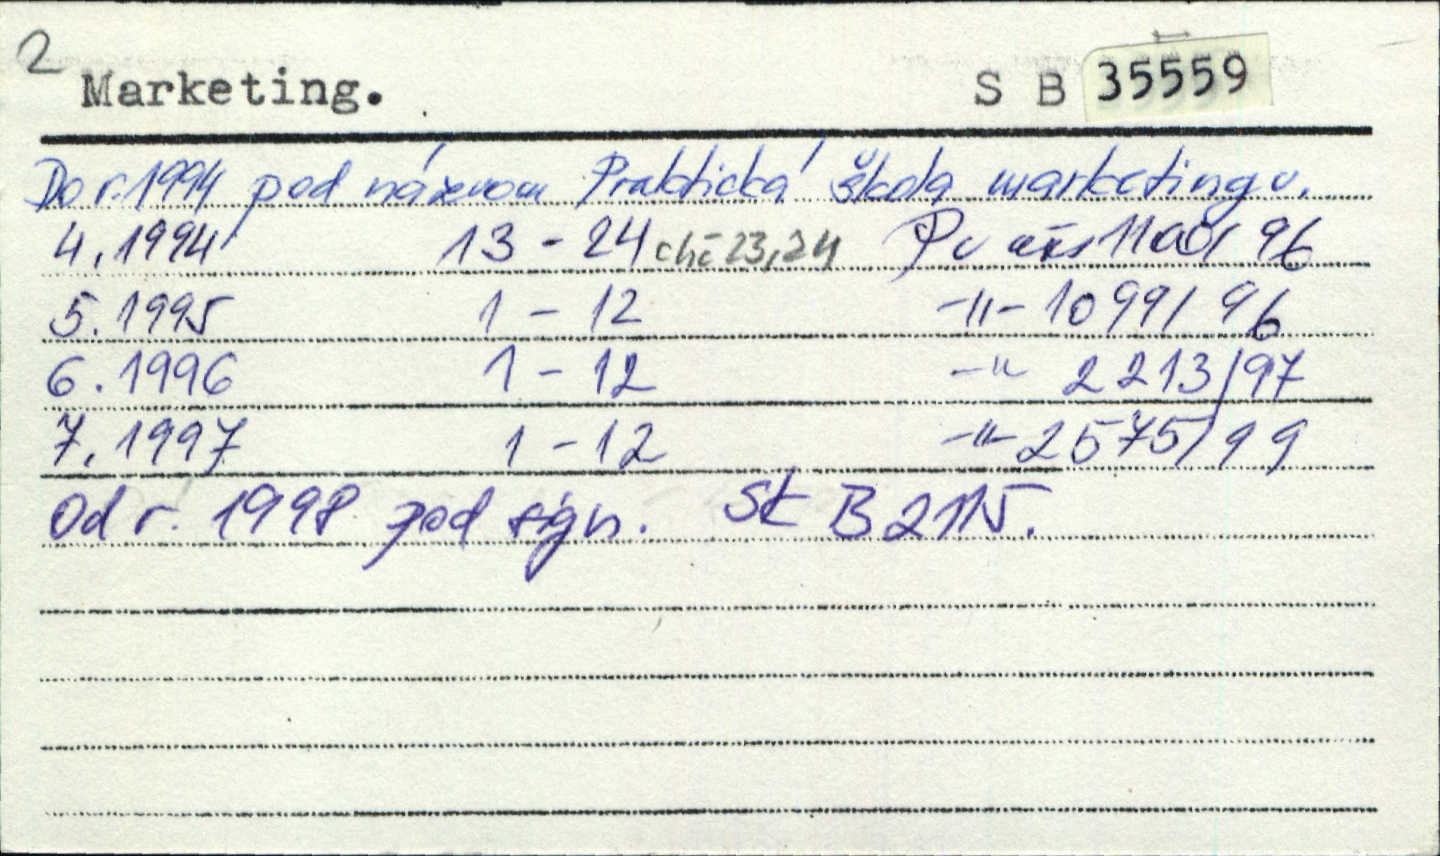 2
Marketing. S B 35559
Do r. 1994 pod názvom Praktická škola marketingu.
4. 1994 13 - 24 chč 23,24 Pv 1100/96
5. 1995 1 - 12 -"- 1099/96
6. 1996 1 - 12 -"- 2213/97
7. 1997 1 - 12 -"- 2575/99
Od r. 1998 pod sign. St B 2115.